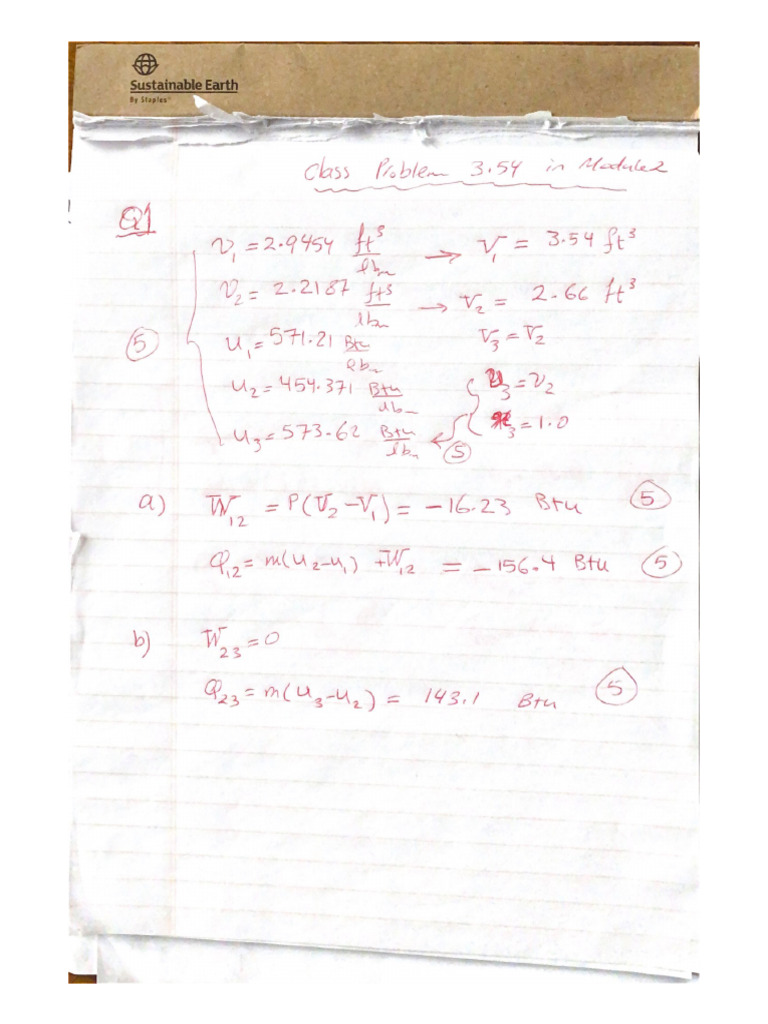 Sustainable Earth
By Staples™
Class Problem 3.54 in Module 2
Q1
v₁ = 2.9454 ft³/lbm → V₁ = 3.54 ft³
v₂ = 2.2187 ft³/lbm → V₂ = 2.66 ft³
5
u₁ = 571.21 Btu/lbm V₃ = V₂
u₂ = 454.371 Btu/lbm v₃ = v₂
u₃ = 573.62 Btu/lbm ← x₃ = 1.0
5
a) W₁₂ = P(V₂ − V₁) = −16.23 Btu 5
Q₁₂ = m(u₂ − u₁) + W₁₂ = −156.4 Btu 5
b) W₂₃ = 0
Q₂₃ = m(u₃ − u₂) = 143.1 Btu 5